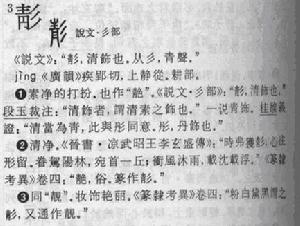 3彭 說文·彡部
《説文》：“彭，清飾也。从彡，青聲。”
jìng 《廣韻》疾郢切，上静從。耕部。
❶素净的打扮。也作“䒌”。《説文·彡部》：“彭，清飾也。”
段玉裁注：“清飾者，謂清素之飾也。”一説青飾。桂馥義
證：“清當為青，此與彤同意。彤，丹飾也。”
❷清净。《晉書·凉武昭王李玄盛傳》：“時弗獲彭，心往
形留。眷駕陽林，宛首一丘；衝風沐雨，載沈載浮。”《篆隸
考異》卷四：“䒌，俗。篆作彭。”
❸同“靚”。妆饰艳丽。《篆隸考異》卷四：“粉白黛黑謂之
彭，又通作靚。”